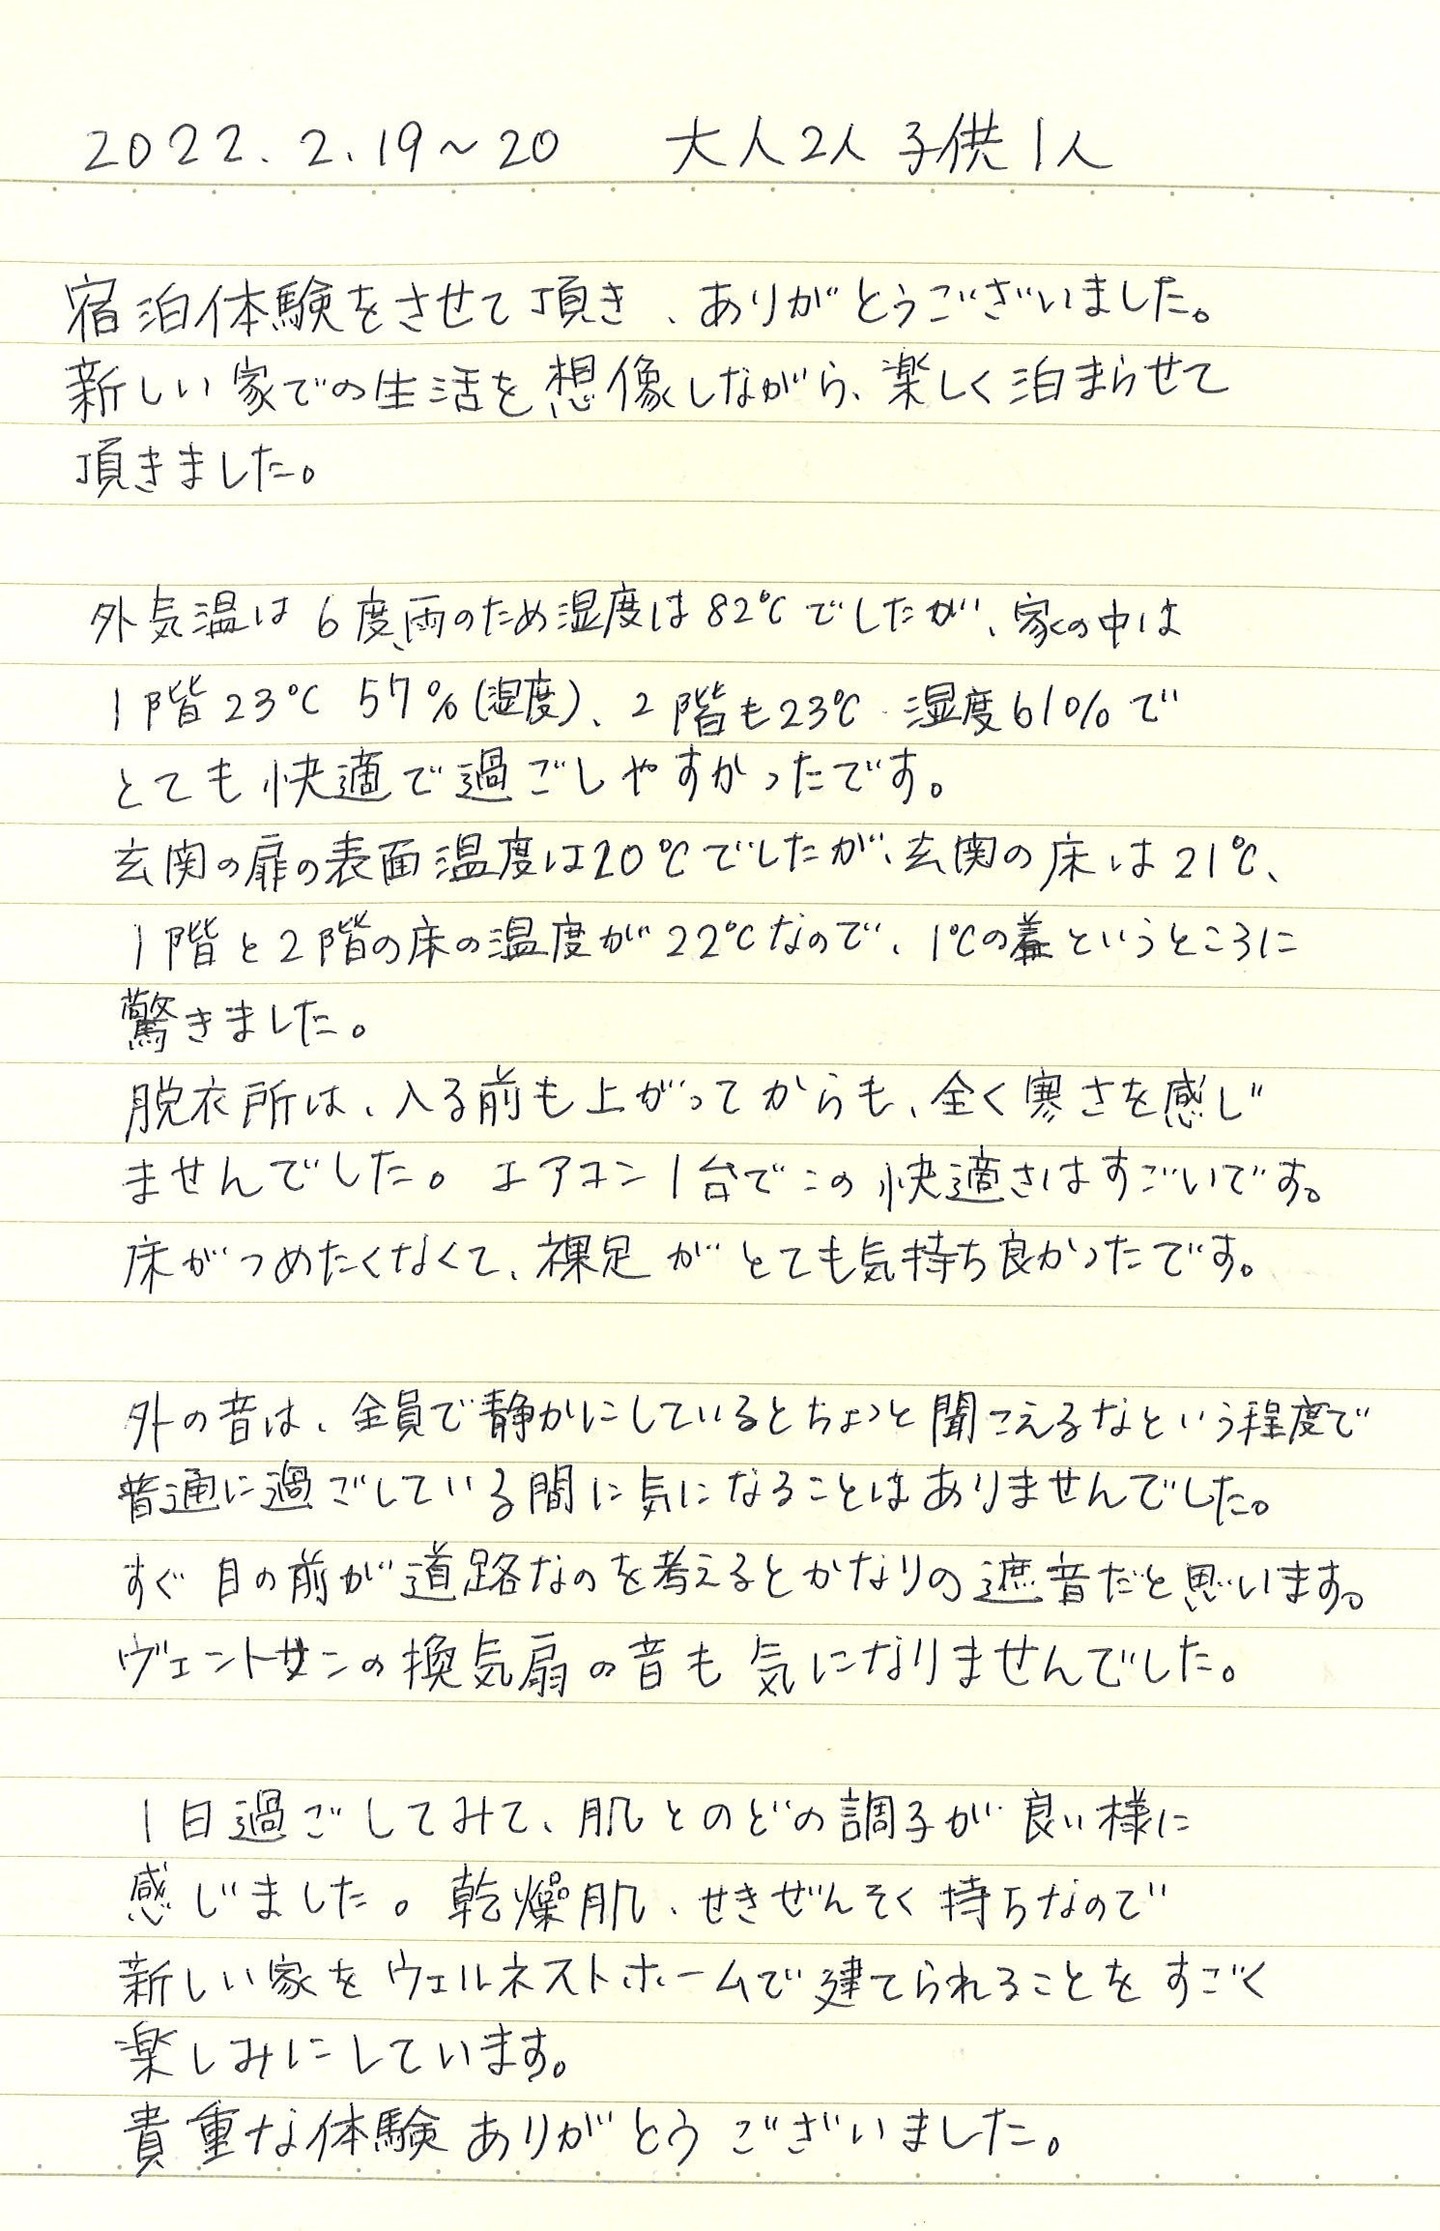 2022.2.19～20 大人2人 子供1人
宿泊体験をさせて頂き、ありがとうございました。
新しい家での生活を想像しながら、楽しく泊まらせて
頂きました。
外気温は6度、雨のため湿度は82℃でしたが、家の中は
1階23℃ 57%(湿度)、2階も23℃ 湿度61%で
とても快適で過ごしやすかったです。
玄関の扉の表面温度は20℃でしたが、玄関の床は21℃、
1階と2階の床の温度が22℃なので、1℃の差というところに
驚きました。
脱衣所は、入る前も上がってからも、全く寒さを感じ
ませんでした。エアコン1台でこの快適さはすごいです。
床がつめたくなくて、裸足がとても気持ち良かったです。
外の音は、全員で静かにしているとちょっと聞こえるなという程度で
普通に過ごしている間に気になることはありませんでした。
すぐ目の前が道路なのを考えるとかなりの遮音だと思います。
ヴェントサンの換気扇の音も気になりませんでした。
1日過ごしてみて、肌とのどの調子が良い様に
感じました。乾燥肌、せきぜんそく持ちなので
新しい家をウェルネストホームで建てられることをすごく
楽しみにしています。
貴重な体験ありがとうございました。